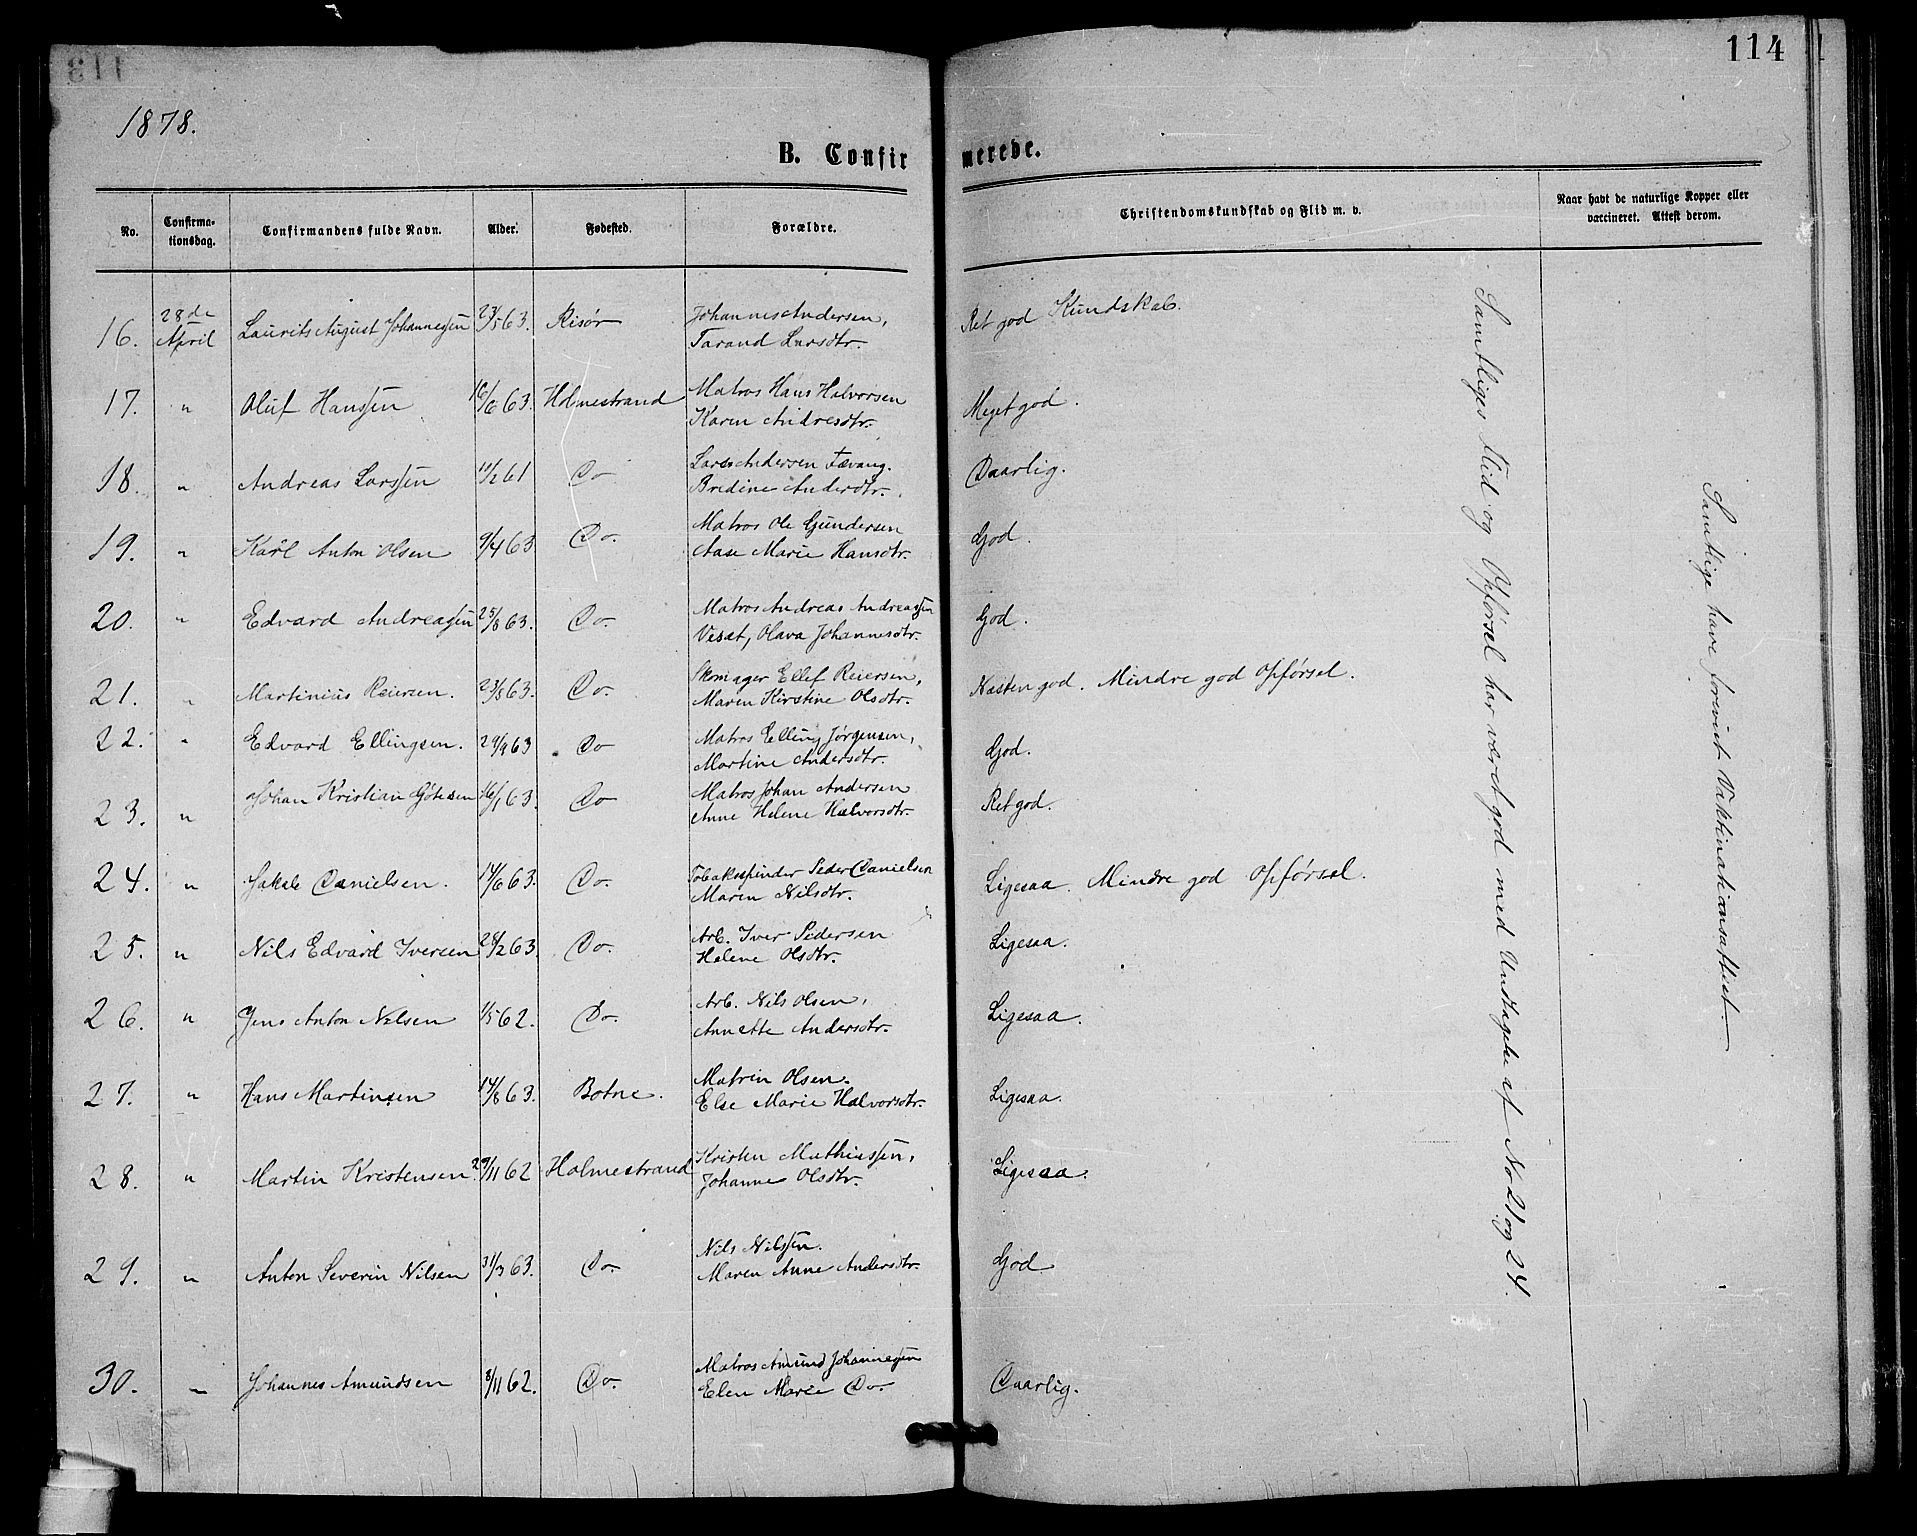 113
114
1878.
B. Confirmerede.
No. Confirmationsdag. Confirmandens fulde Navn. Alder. Fødested. Forældre. Christendomskundskab og Flid m. v. Naar havt de naturlige Kopper eller vaccineret. Attest derom.
16. 28de April Laurits August Johannesen 23/5 63. Risør Johannes Andersen, Ret god Kundskab.
Tarand Larsdtr.
17. " Oluf Hansen 16/6 63. Holmestrand Matros Hans Halvorsen Meget god.
Karen Andresdtr.
18. " Andreas Larssen 10/2 61 Do Lars Andersen Tævang. Daarlig.
Bredine Andersdtr.
19. " Karl Anton Olsen 9/4 63 Do. Matros Ole Gundersen God.
Aase Marie Hansdtr.
20. " Edvard Andreassen 25/8 63. Do. Matros Andreas Andreassen God.
Olava Johannesdtr.
21. " Martinius Reiersen. 23/8 63. Do. Skomager Ellef Reiersen, Næsten god. Mindre god Opførsel.
Maren Kirstine Olsdtr.
22. " Edvard Ellingsen. 29/9 63 Do Matros Elling Jørgensen, God.
Martine Andersdtr.
23. " Johan Kristian 16/1 63. Do Matros Johan Andersen Ret god.
Anne Helene Halvorsdtr.
24. " Jakob Danielsen. 14/6 63. Do. Tobakspinder Peder Danielsen Ligesaa. Mindre god Opførsel.
Maren Nilsdtr.
25. " Nils Edvard Iversen 28/2 63. Do. Arb. Iver Pedersen Ligesaa.
Helene Olsdtr.
26. " Jens Anton Nilsen 1/5 62. Do. Arb. Nils Olsen, Ligesaa.
Annette Andersdtr.
27. " Hans Martinsen 14/8 63. Botne. Matrin Olsen. Ligesaa.
Else Marie Halvorsdtr.
28. " Martin Kristensen 29/11 62 Holmestrand Kristen Mathiassen, Ligesaa.
Johanne Olsdtr.
29. " Anton Severin Nilsen 31/3 63. Do. Nils Nilssen. God.
Maren Anne Andersdtr.
30. " Johannes Amundsen 8/11 62. Do. Matros Amund Johannesen Daarlig.
Elen Marie Do.
Samtliges Flid og Opførsel har været god med Undtagelse af No 21 og 24.
Samtlige have forevist Vaktinationsattest